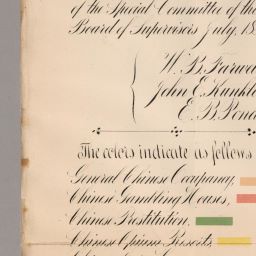 of the Special Committee of the
Board of Supervisors July, 18
W. B. Farwe
John E. Kunkle
E. B. Pond
The colors indicate as follows
General Chinese Occupancy,
Chinese Gambling Houses,
Chinese Prostitution,
Chinese Opium Resorts,